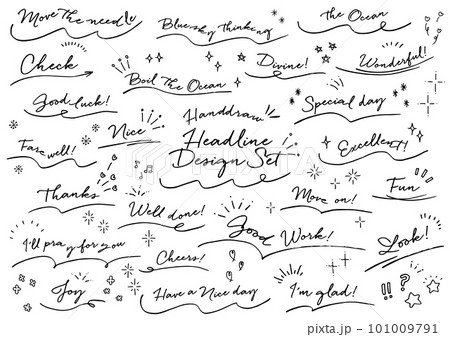 Move The needle
Blue sky Thinking
The Ocean
Check
Boil The Ocean
Divine!
Wonderful!
Good luck!
Nice
Handdraw
Headline
Design Set
Special day
Farewell!
Excellent!
Thanks
Well done!
Move on!
Fun
I'll pray for you
Cheers!
Good Work!
Look!
Joy
Have a Nice day
I'm glad!
!! ?
PIXTA
pixta.jp - 101009791